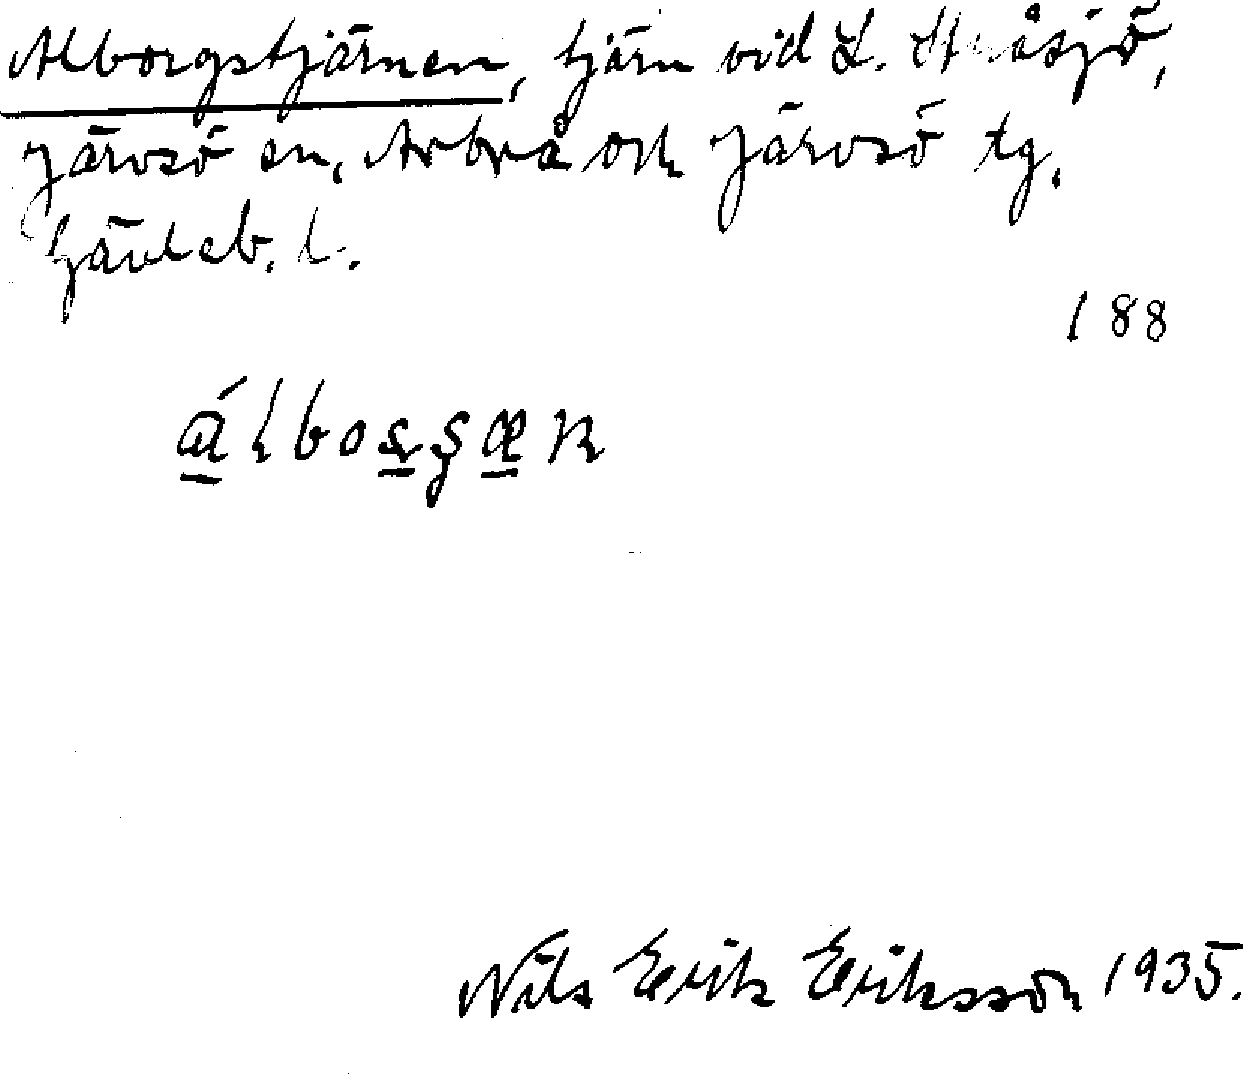 Alborgstjärnen, tjärn vid L. Huåsjö,
Järvsö sn, Arbrå och Järvsö tg,
Gävleb. l.
188
a᷄lborgæn
Nils Erik Eriksson 1935.